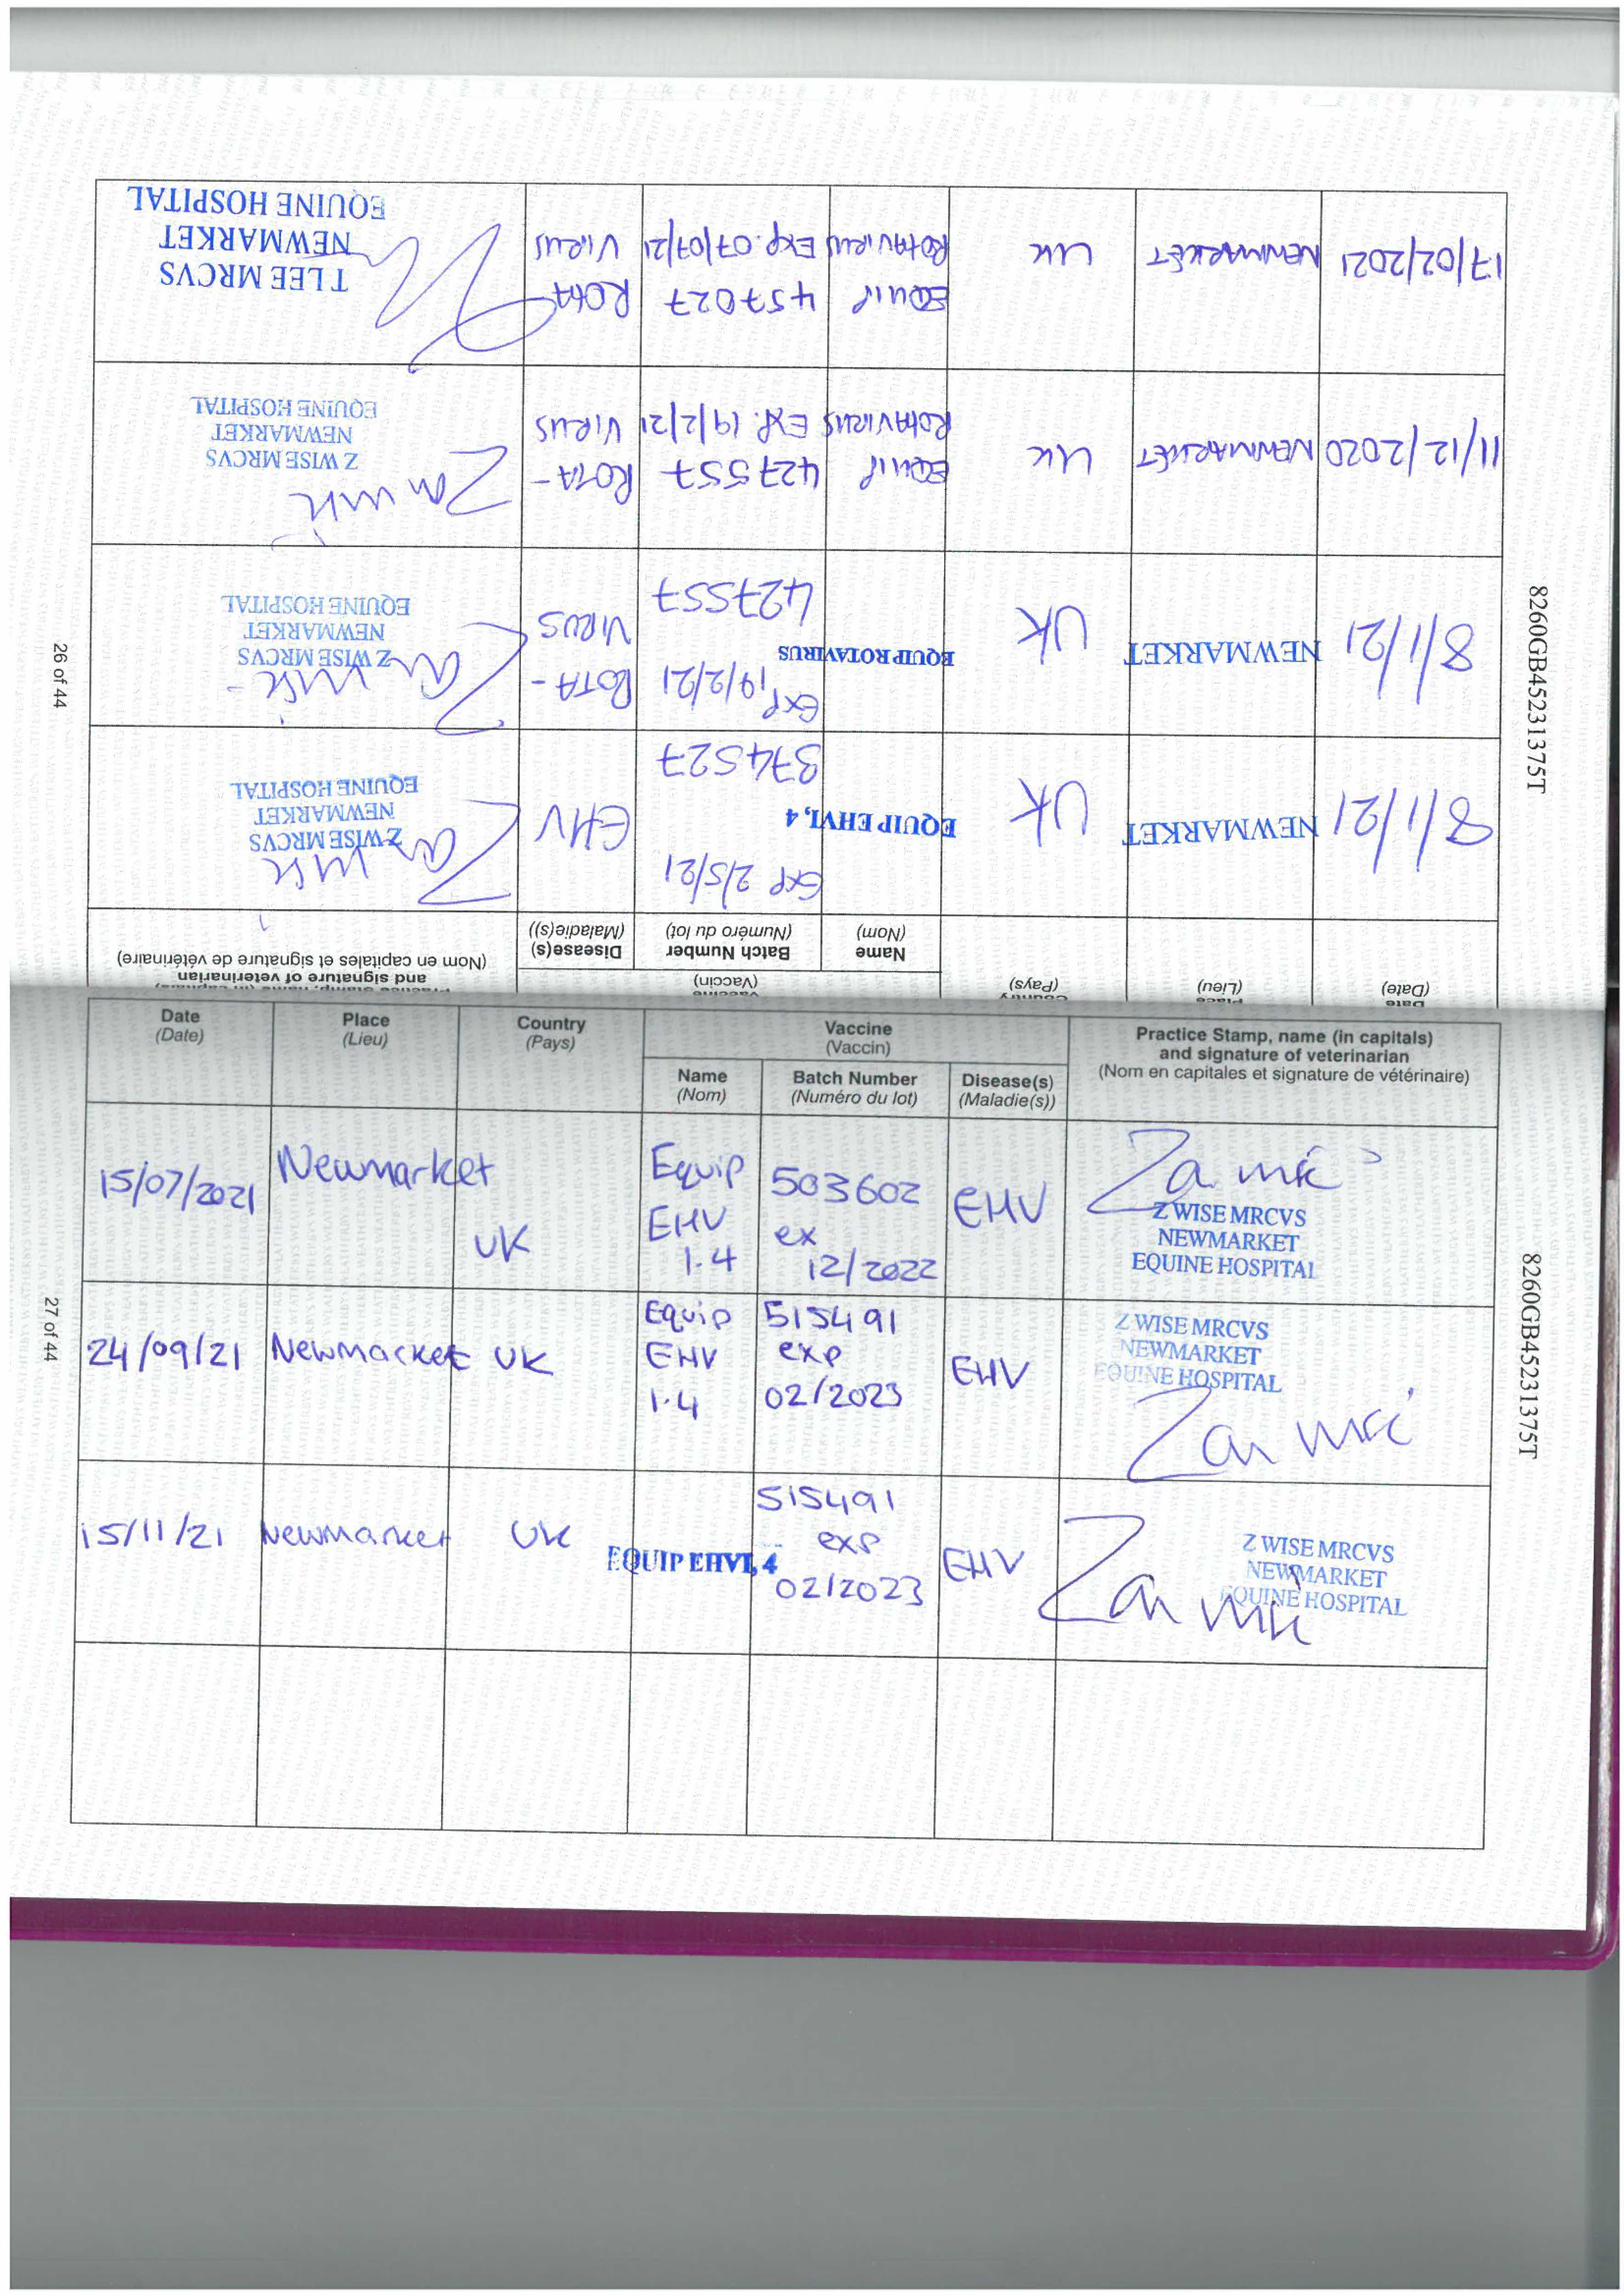 Date
(Date)
Place
(Lieu)
Country
(Pays)
Vaccine
(Vaccin)
Name
(Nom)
Batch Number
(Numéro du lot)
Disease(s)
(Maladie(s))
and signature of veterinarian
(Nom en capitales et signature de vétérinaire)
8/1/21
NEWMARKET
UK
EQUIP EHV1, 4
exp 2/5/21
374527
EHV
Z WISE MRCVS
NEWMARKET
EQUINE HOSPITAL
8/1/21
NEWMARKET
UK
EQUIP ROTAVIRUS
exp 19/2/21
427557
ROTA-
VIRUS
Z WISE MRCVS
NEWMARKET
EQUINE HOSPITAL
11/12/2020
NEWMARKET
UK
EQUIP
ROTAVIRUS
427557
EXP. 19/2/21
ROTA-
VIRUS
Z WISE MRCVS
NEWMARKET
EQUINE HOSPITAL
17/02/2021
NEWMARKET
UK
EQUIP
ROTAVIRUS
457027
EXP. 07/07/21
ROTA
VIRUS
T LEE MRCVS
NEWMARKET
EQUINE HOSPITAL
26 of 44
8260GB45231375T
Date
(Date)
Place
(Lieu)
Country
(Pays)
Vaccine
(Vaccin)
Name
(Nom)
Batch Number
(Numéro du lot)
Disease(s)
(Maladie(s))
Practice Stamp, name (in capitals)
and signature of veterinarian
(Nom en capitales et signature de vétérinaire)
15/07/2021
Newmarket
UK
Equip
EHV
1.4
503602
ex
12/2022
EHV
Z WISE MRCVS
NEWMARKET
EQUINE HOSPITAL
24/09/21
Newmarket
UK
Equip
EHV
1.4
515491
exp
02/2023
EHV
Z WISE MRCVS
NEWMARKET
EQUINE HOSPITAL
15/11/21
Newmarket
UK
EQUIP EHV1, 4
515491
exp
02/2023
EHV
Z WISE MRCVS
NEWMARKET
EQUINE HOSPITAL
27 of 44
8260GB45231375T